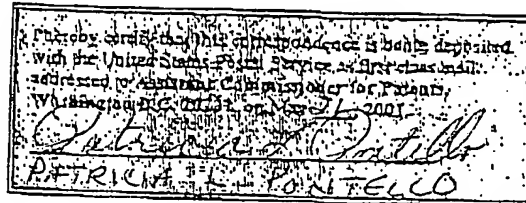 I hereby certify that this correspondence is being deposited
with the United States Postal Service as first class mail
addressed to Assistant Commissioner for Patents,
Washington D.C. on May 21, 2001.
Patricia L Pontello
PATRICIA L. PONTELLO